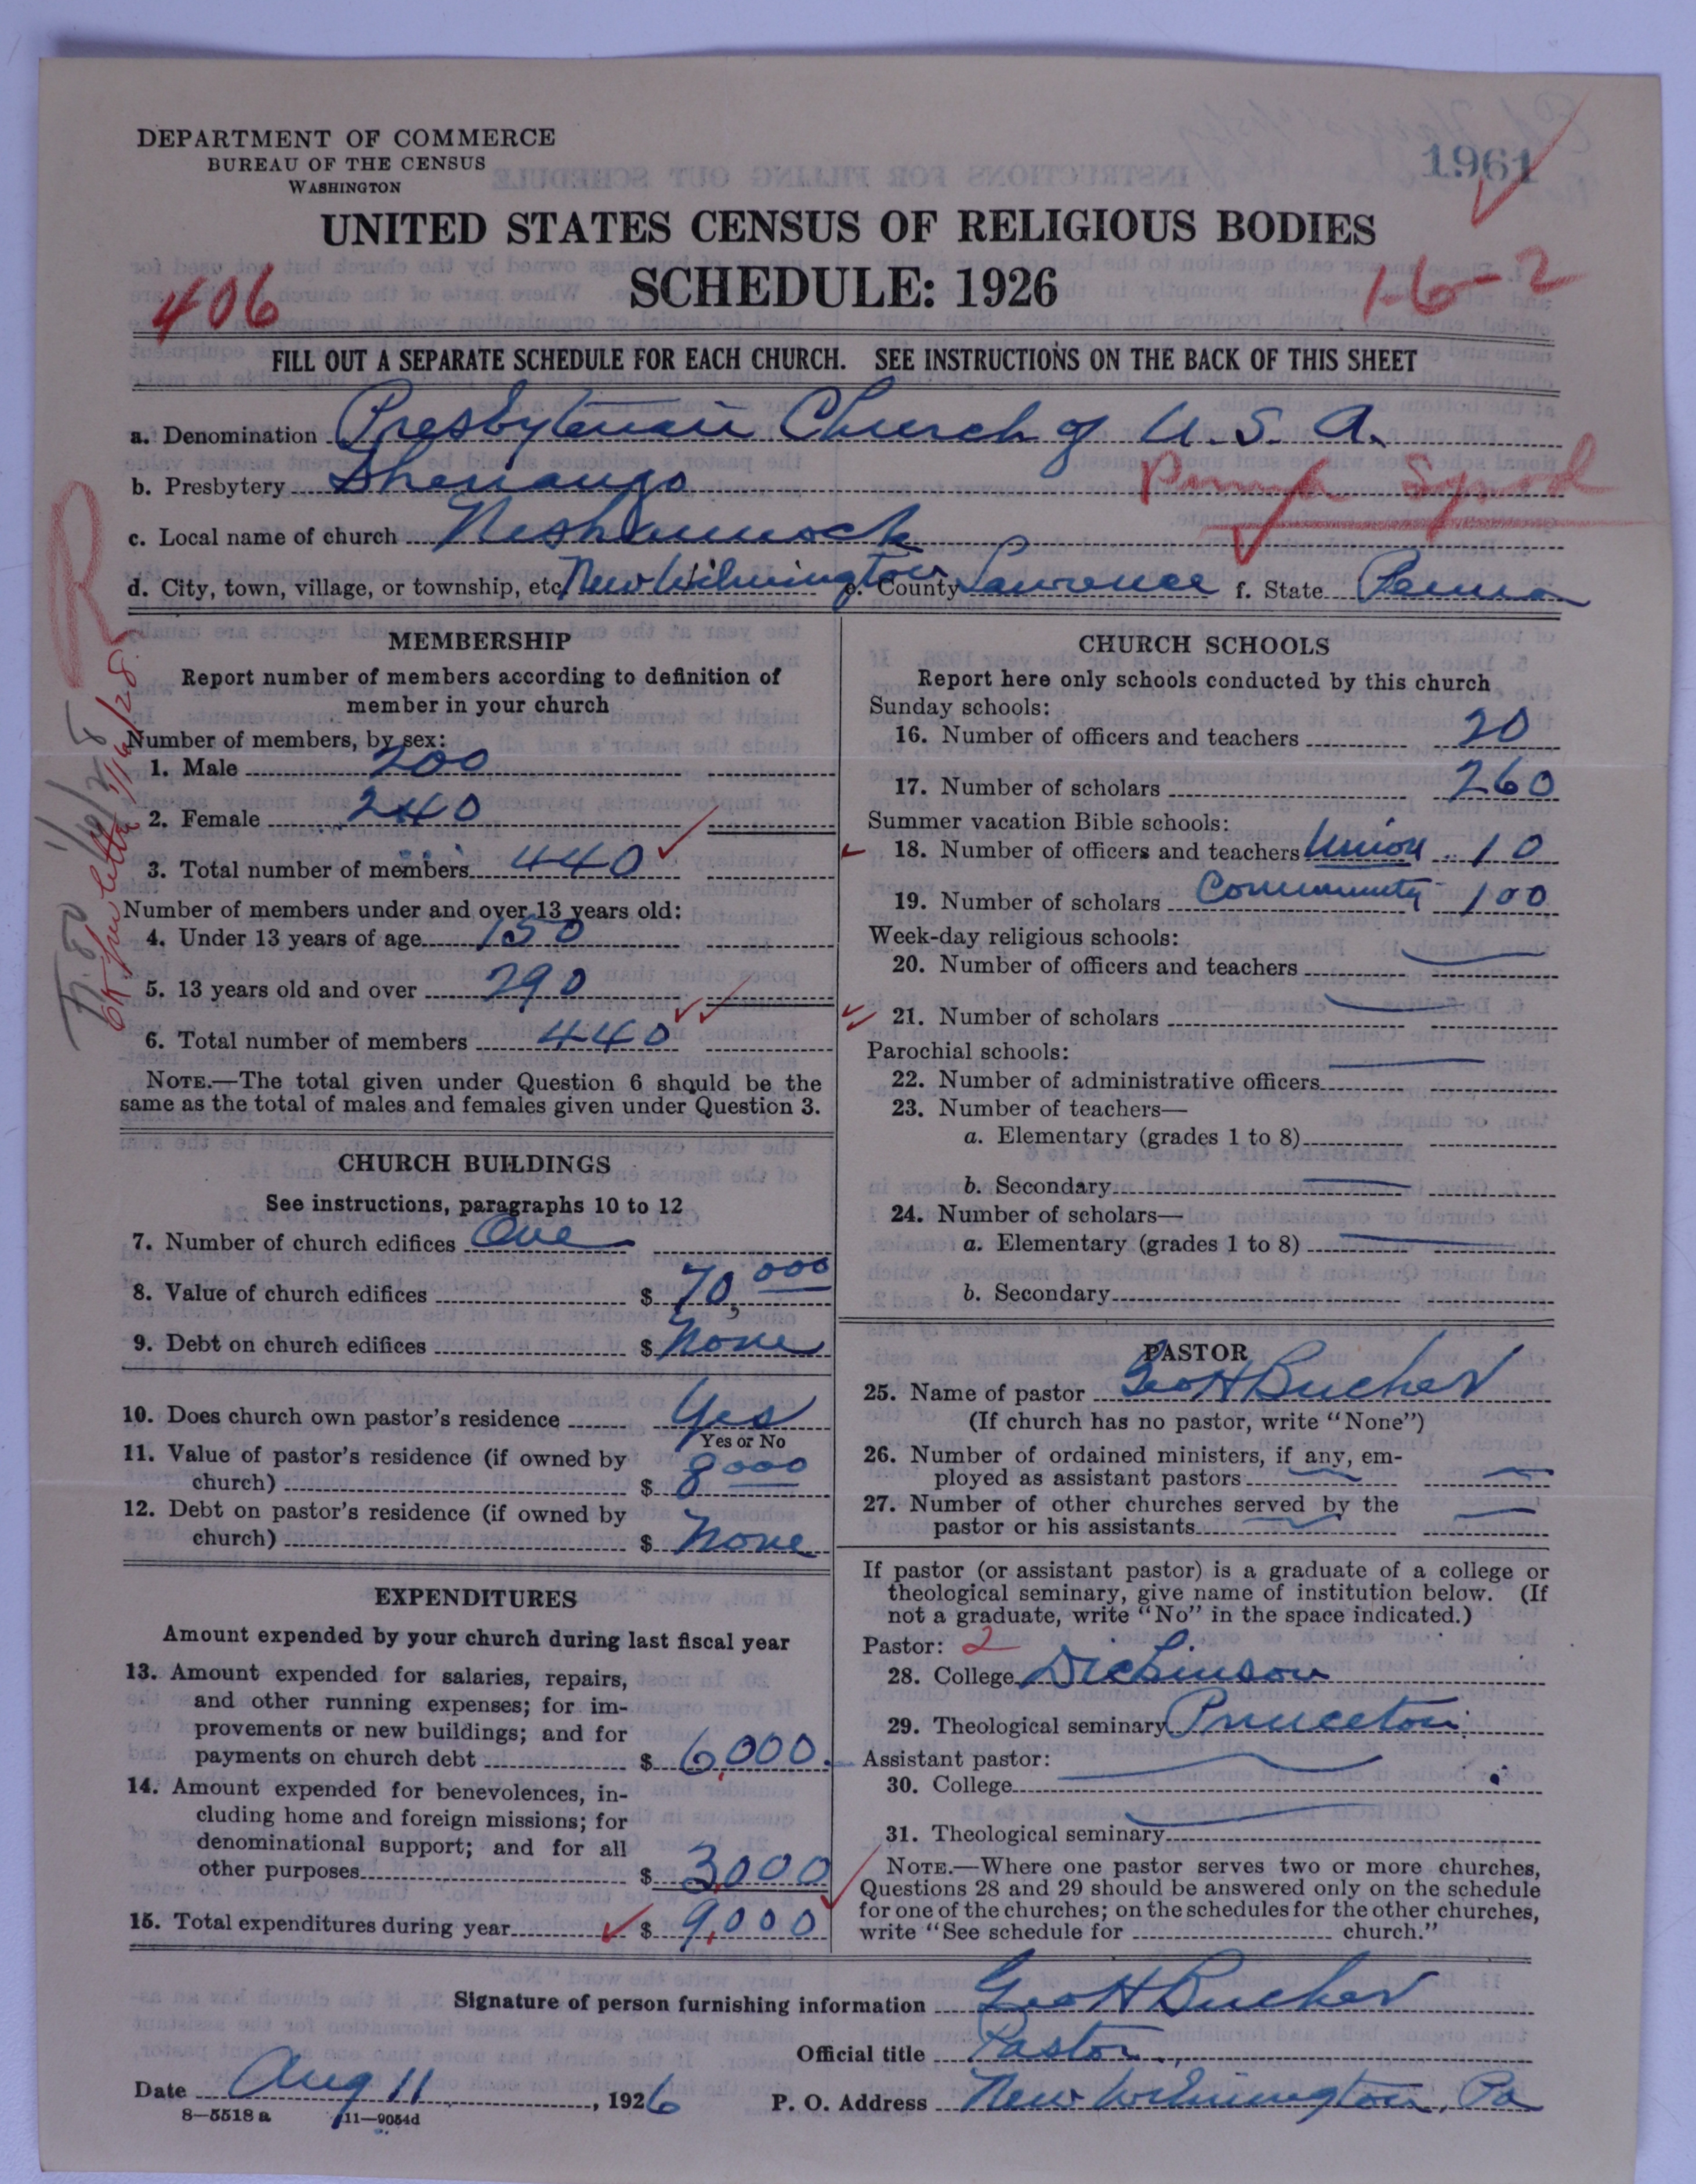 DEPARTMENT OF COMMERCE
BUREAU OF THE CENSUS
WASHINGTON
1961
UNITED STATES CENSUS OF RELIGIOUS BODIES
SCHEDULE: 1926
406
1-6-2
FILL OUT A SEPARATE SCHEDULE FOR EACH CHURCH. SEE INSTRUCTIONS ON THE BACK OF THIS SHEET
a. Denomination Presbyterian Church of U.S.A.
b. Presbytery Shenango Penna Synod
c. Local name of church Neshannock
d. City, town, village, or township, etc. New Wilmington e. County Lawrence f. State Penna
R
OK per letter 1/16/28
1/6/28
MEMBERSHIP
Report number of members according to definition of
member in your church
Number of members, by sex:
1. Male 200
2. Female 240
3. Total number of members 440
Number of members under and over 13 years old:
4. Under 13 years of age 150
5. 13 years old and over 290
6. Total number of members 440
NOTE.—The total given under Question 6 should be the
same as the total of males and females given under Question 3.
CHURCH BUILDINGS
See instructions, paragraphs 10 to 12
7. Number of church edifices One
8. Value of church edifices $ 70,000
9. Debt on church edifices $ None
10. Does church own pastor's residence Yes
Yes or No
11. Value of pastor's residence (if owned by
church) $ 8000
12. Debt on pastor's residence (if owned by
church) $ None
EXPENDITURES
Amount expended by your church during last fiscal year
13. Amount expended for salaries, repairs,
and other running expenses; for im-
provements or new buildings; and for
payments on church debt $ 6,000.
14. Amount expended for benevolences, in-
cluding home and foreign missions; for
denominational support; and for all
other purposes $ 3,000
15. Total expenditures during year $ 9,000
CHURCH SCHOOLS
Report here only schools conducted by this church
Sunday schools:
16. Number of officers and teachers 20
17. Number of scholars 260
Summer vacation Bible schools:
18. Number of officers and teachers Union 10
19. Number of scholars Community 100
Week-day religious schools:
20. Number of officers and teachers
21. Number of scholars
Parochial schools:
22. Number of administrative officers
23. Number of teachers—
a. Elementary (grades 1 to 8)
b. Secondary
24. Number of scholars—
a. Elementary (grades 1 to 8)
b. Secondary
PASTOR
25. Name of pastor Geo H Bucher
(If church has no pastor, write "None")
26. Number of ordained ministers, if any, em-
ployed as assistant pastors
27. Number of other churches served by the
pastor or his assistants
If pastor (or assistant pastor) is a graduate of a college or
theological seminary, give name of institution below. (If
not a graduate, write "No" in the space indicated.)
Pastor: 2
28. College Dickinson
29. Theological seminary Princeton
Assistant pastor:
30. College
31. Theological seminary
NOTE.—Where one pastor serves two or more churches,
Questions 28 and 29 should be answered only on the schedule
for one of the churches; on the schedules for the other churches,
write "See schedule for church."
Signature of person furnishing information Geo H Bucher
Official title Pastor
Date Aug 11, 1926 P. O. Address New Wilmington, Pa
8—5518 a 11—9054d